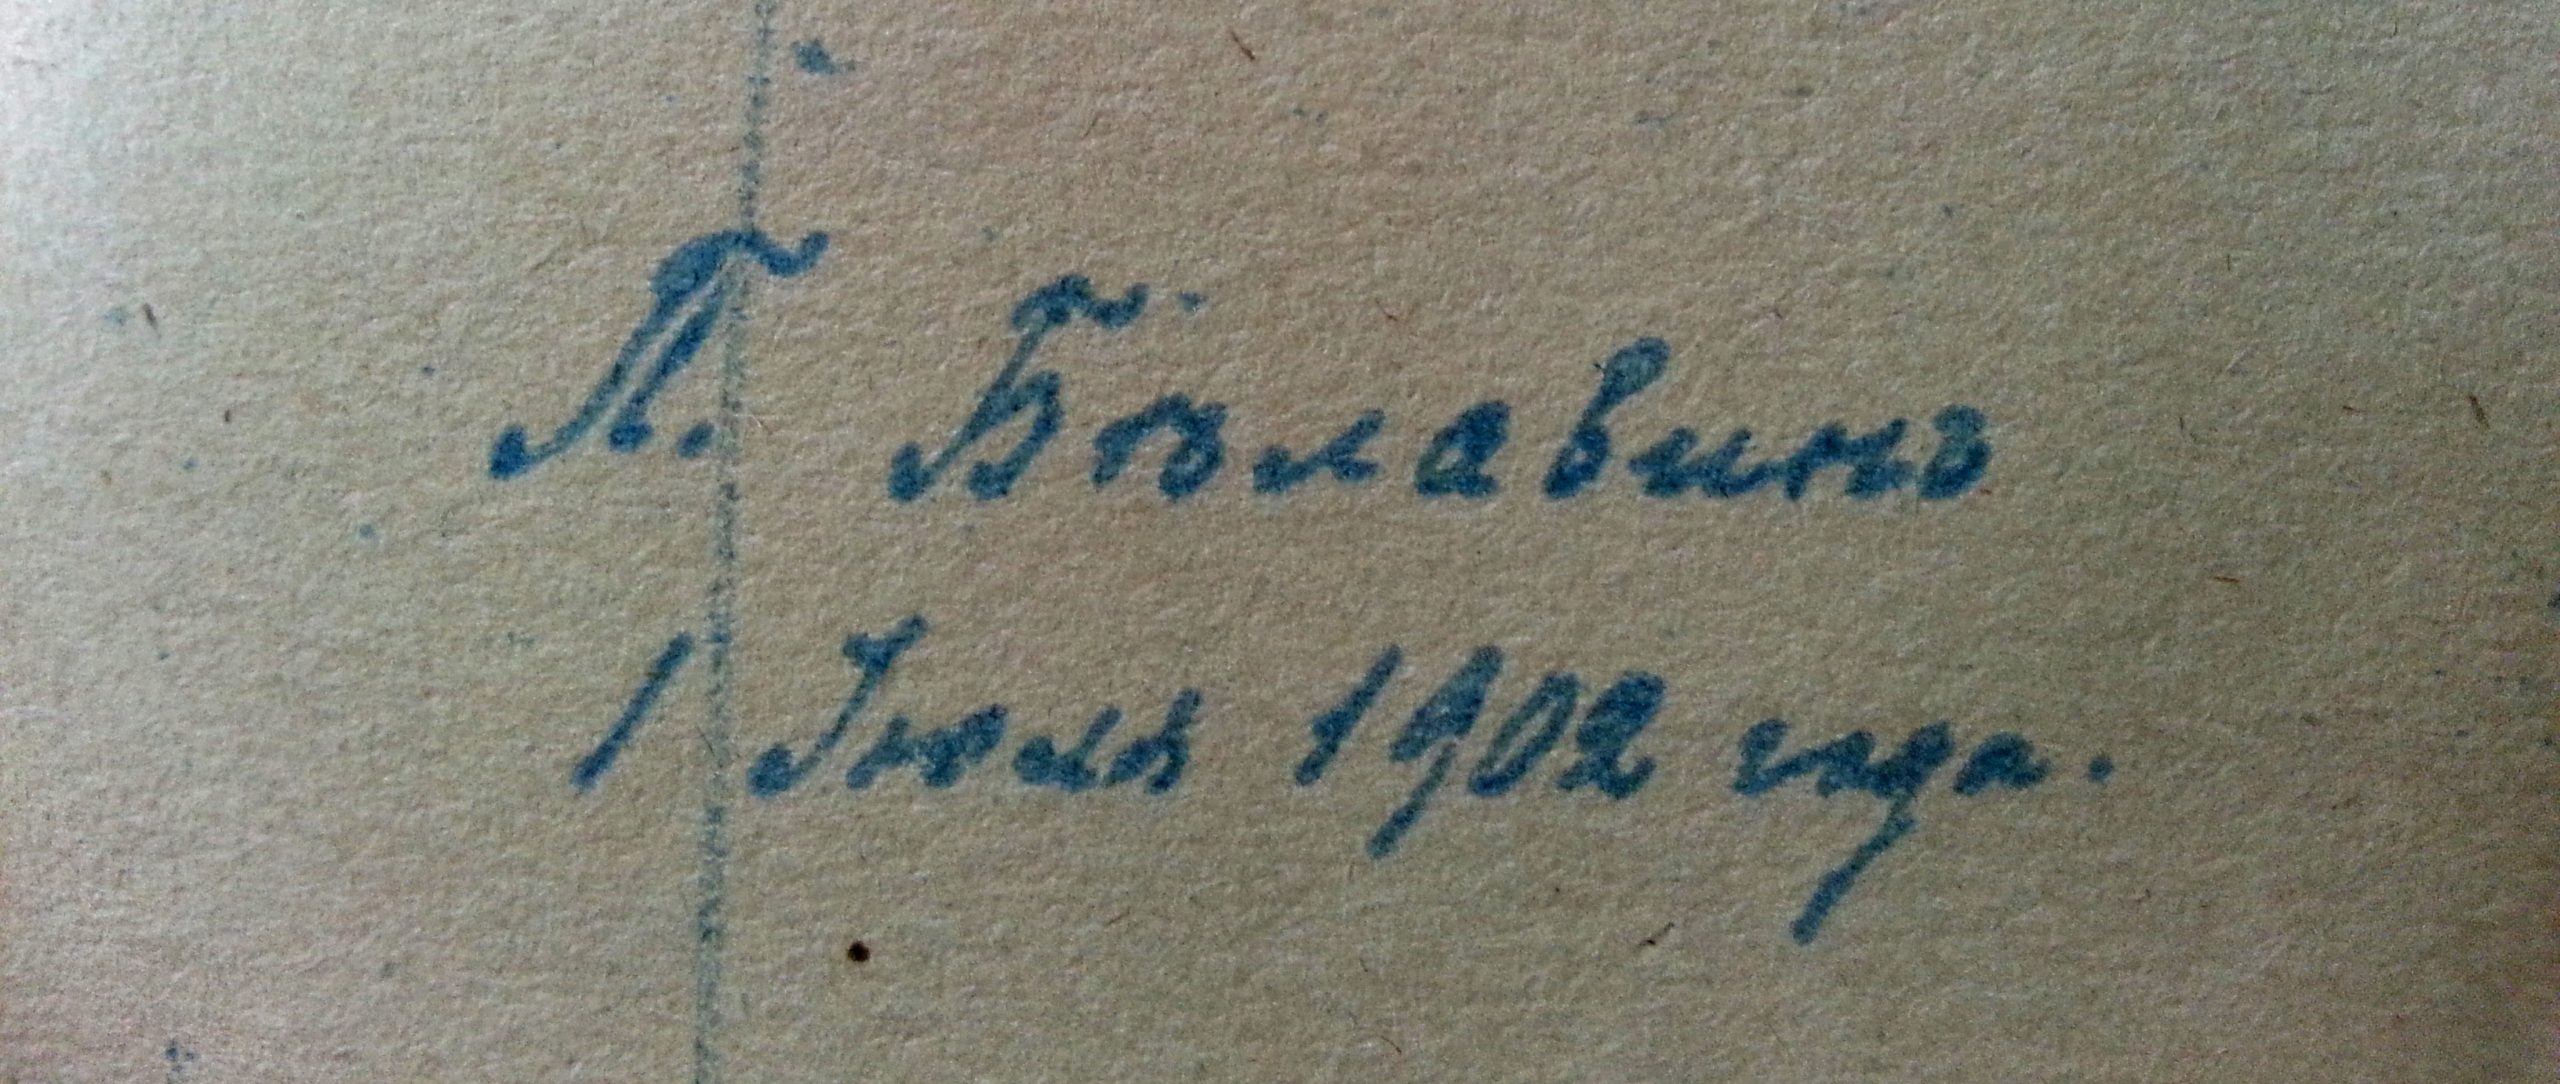 П. Бѣлавинъ
1 Іюля 1902 года.